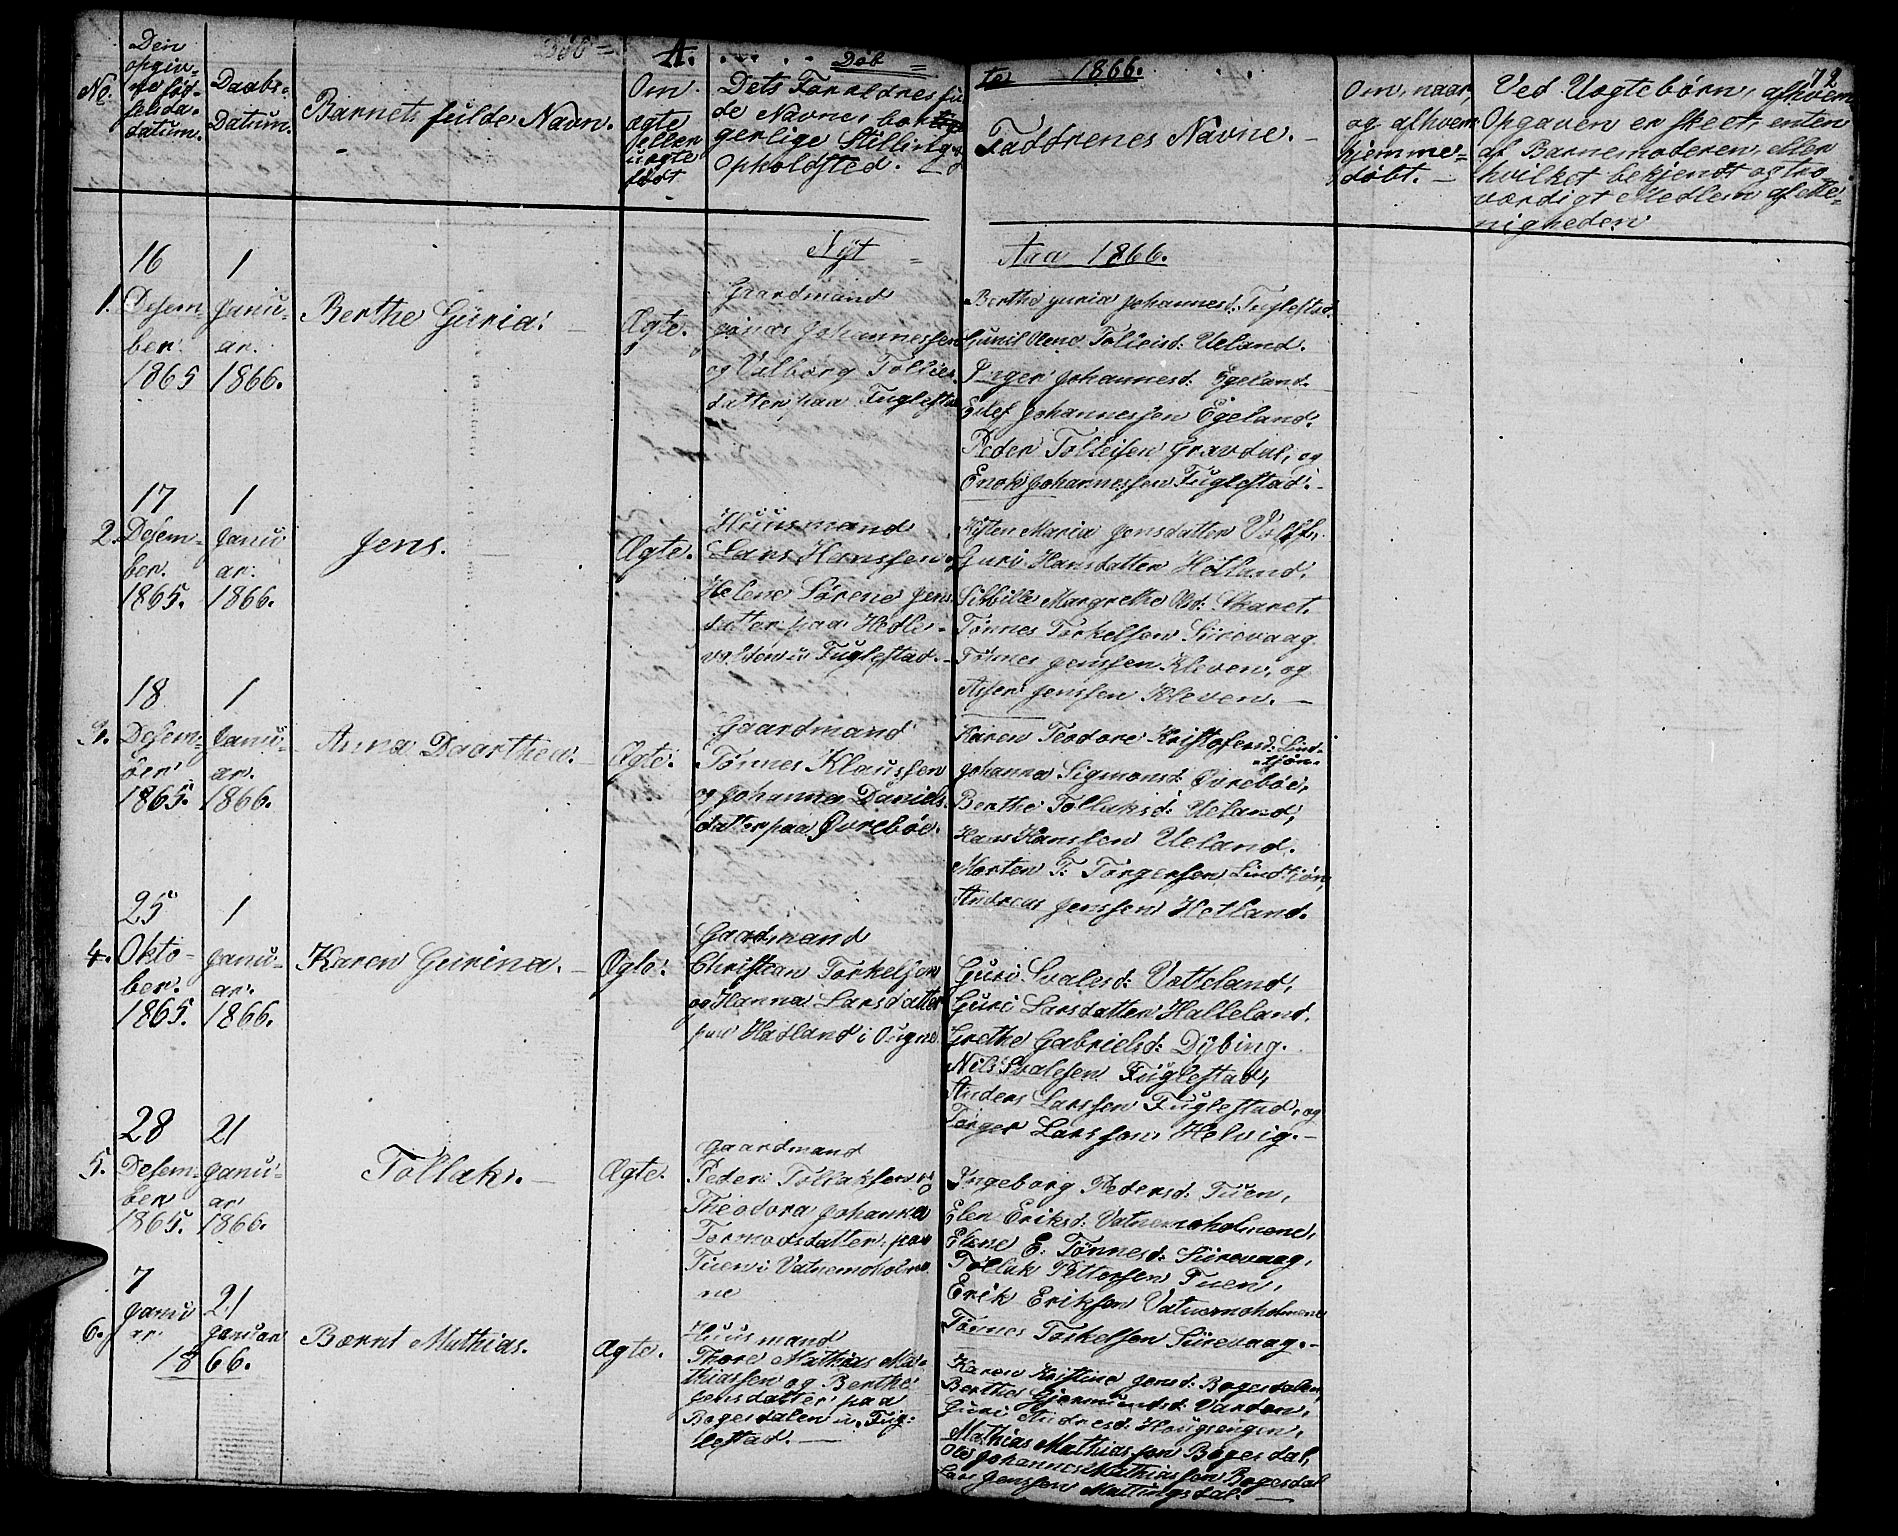 Døb= A. Døb=
te 1866. 72
No.
Den
opgiv-
ne fød-
selda-
datum.
Daabs-
Datum.
Barnets fulde Navn.
Om
ægte
eller
uægte
født
Dets Forældres ful
de Navne bor
gerlige Stilling og
Opholdsted.
Faddrenes Navne.
Om, naar,
og afhvem
hjemme-
døbt.
Ved Uægtebørn, afhvem
Opgaven er skeet, enten
af Barnemoderen, eller
hvilket bekjendt og tro-
værdigt Medlem af Me-
nigheden
Nyt =
Aar 1866.
1.
16
Desem
ber.
1865
1
Janu-
ar.
1866.
Berthe Guria.
Ægte.
Gaardmand
Jonas Johannessen
og Valborg Tollies-
datter paa Fuglestad
Berthe Guria Johannesd: Fuglestad.
Gunil Olene Tolleisd: Ueland.
Inger Johannesd: Egeland.
Eilef Johannessen Egeland.
Peder Tolleisen Gravdal, og
Enok Johannessen Fuglestad.
2.
17
Desem-
ber.
1865.
1
Janu
ar.
1866.
Jens.
Ægte.
Huusmand
Lars Hanssen og
Helene Sørene Jens
datter paa Hedle-
volden u Fuglestad.
Maria Jensdatter
Guri Hansdatter Hetland.
Sibbille Margrethe Olsd: Skaret.
Tønnes Torkelsen Sirevaag
Tønnes Jenssen Kleven, og
Asser Jenssen Kleven.
3.
18
Desem-
ber
1865.
1
Janu-
ar.
1866.
Anna Daarthea.
Ægte.
Gaardmand
Tønnes Klaussen
og Johanna Daniels
datter paa Øvrebøe.
Karen Teodore Kristofersd: Lind-
tjøn
Johanna Sigmonsd: Øvrebøe,
Berthe Tollaksd: Ueland,
Hans Hanssen Ueland.
Morten T: Torgersen Lindtjøn,
Andreas Jenssen Hetland.
4.
25
Okto-
ber.
1865.
1
Janu-
ar.
1866.
Karen Gurina.
Ægte.
Gaardmand
Christean Torkelsen
og Hanna Larsdatter
paa Hadland i Ougne
Guri Svalesd: Vatteland,
Guri Larsdatter Halleland.
Grethe Gabrielsd: Dybing.
Nils Svalesen Fuglestad,
Anders Larssen Fuglestad, og
Torger Larssen Helvig.
5.
28
Desem-
ber
1865.
21
Janu-
ar
1866.
Tollak.
Ægte.
Gaardmand
Peder Tollaksen og
Theodora Johanna
Tormodsdatter, paa
Tuen i Vatnemoholme
ne
Ingeborg Pedersd: Tuen,
Elen Eriksd: Vatnemoholmene,
Elene E: Tønnesd: Sirevaag,
Tollak Pettersen Tuen,
Erik Eriksen Vatnemoholmene
Tønnes Torkelsen Sirevaag.
6.
7
Janu
ar.
21
Januar
1866.
Bærnt Mathias.
Ægte.
Huusmand
Thore Mathias Ma-
thiassen og Berthe
Jensdatter paa
Bøgesdalen u. Fug-
lestad.
Karen Kristine Jensd: Bøgesdalen,
Berthe Gjermundsd: Varden,
Guri Andresd: Hougsengen,
Mathias Mathiassen Bøgesdal,
Ole Johannes Mathiassen Bøgesdal
Lars Jenssen Mattingsdal.